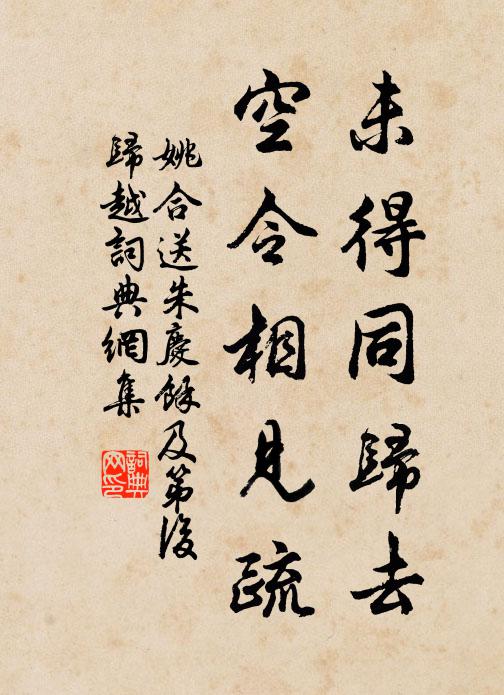 未得同歸去
空令相見疏
姚合送朱慶餘及第後
歸越詞典網集
詞典
网印